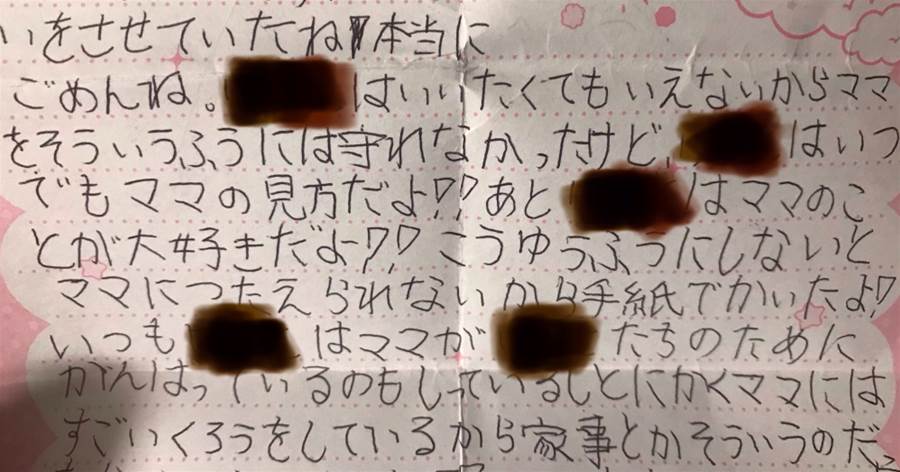 いをさせていたね!本当に
ごめんね。はいいたくてもいえないからママ
をそういうふうには守れなかったけど、はいつ
でもママの見方だよ!!あと はママのこ
とが大好きだよ!!こうゆうふうにしないと
ママにつたえられないから手紙でかいたよ!
いつも はママが たちのために
がんばっているのもしっているしとにかくママには
すごいくろうをしているから家事とかそういうのだ